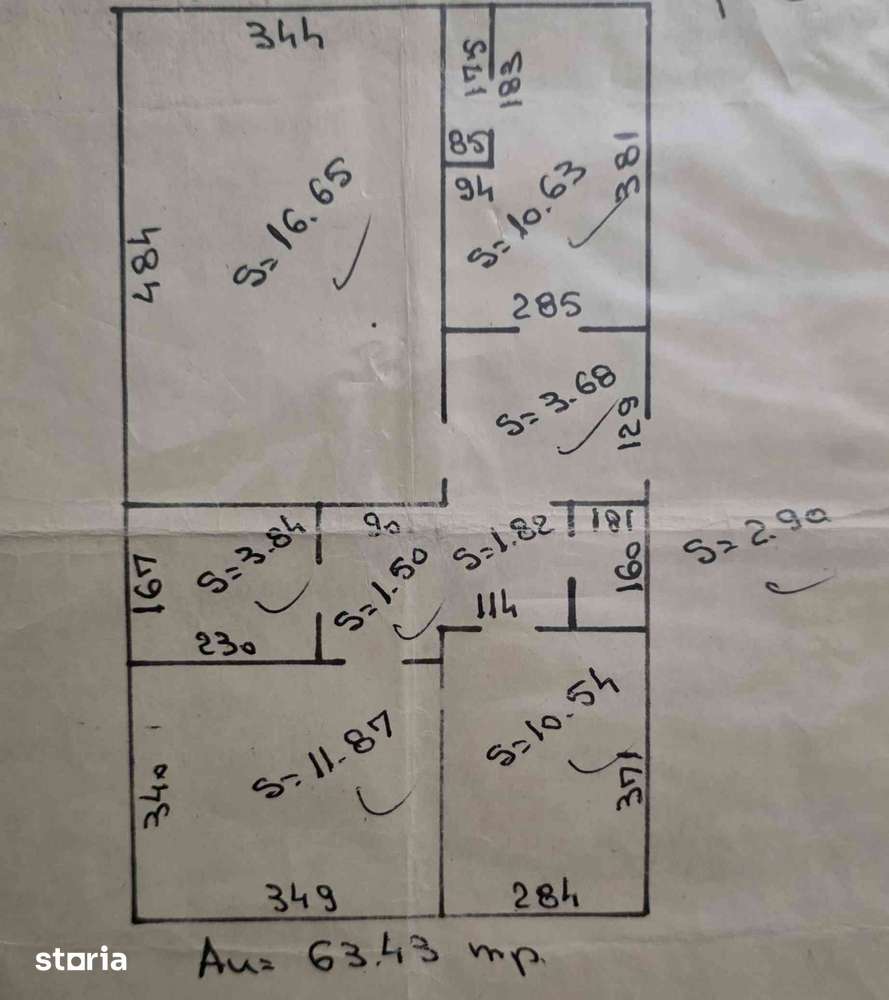 344
175
183
85
94
381
S=16.65
S=10.63
484
285
S=3.68
129
90
181
S=3.84
S=1.50
S=1.82
160
S=2.90
167
114
230
S=11.87
S=10.54
340
371
349
284
Au= 63.43 mp.
storia